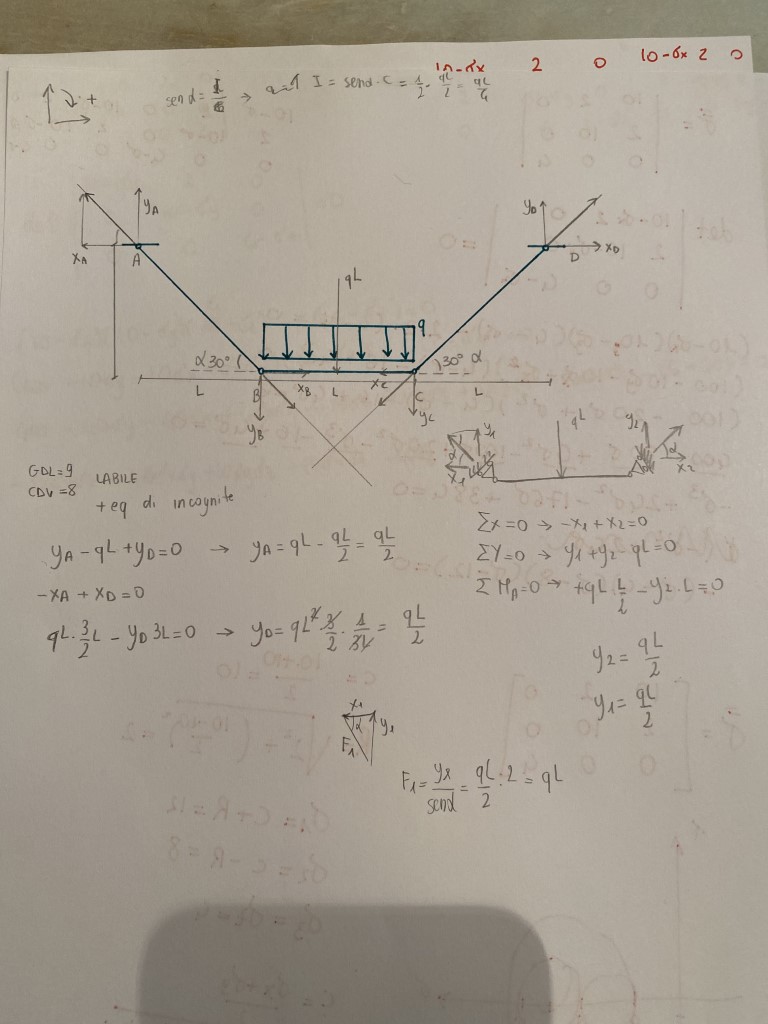 10-σx 2 0 10-σx 2 0
+
send = 1/2 → a=1 I = send · C = 1/2 · qL/2 = qL/4
yA
yD
xA
A
D
xD
qL
q
α 30°
30° α
L
B
xB
L
xC
C
L
yB
yC
qL
y1
y2
α
α
x1
x2
GDL=9
CDV=8 LABILE
+eq di incognite
yA - qL + yD = 0 → yA = qL - qL/2 = qL/2
-xA + xD = 0
qL · 3/2 L - yD 3L = 0 → yD = qL² 3/2 · 1/3L = qL/2
ΣX=0 → -x1 + x2 = 0
ΣY=0 → y1 + y2 - qL = 0
ΣMA=0 → +qL L/2 - y2 · L = 0
y2 = qL/2
y1 = qL/2
x1
α
y1
F1
F1 = y1/send = qL/2 · 2 = qL